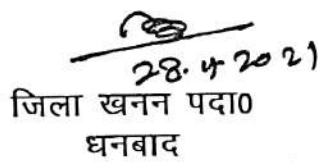 28.4.2021
जिला खनन पदा0
धनबाद